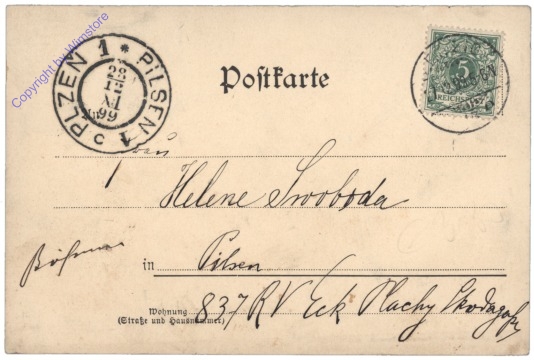 Copyright by Wimstore
PLZEN 1 * PILSEN 1
23
12
XI
99
Postkarte
LEIPZIG
5
REICHSPOST
Frau
Helene Swoboda
Böhmen
in Pilsen
Wohnung
(Straße und Hausnummer)
837 RV Eck Plachy